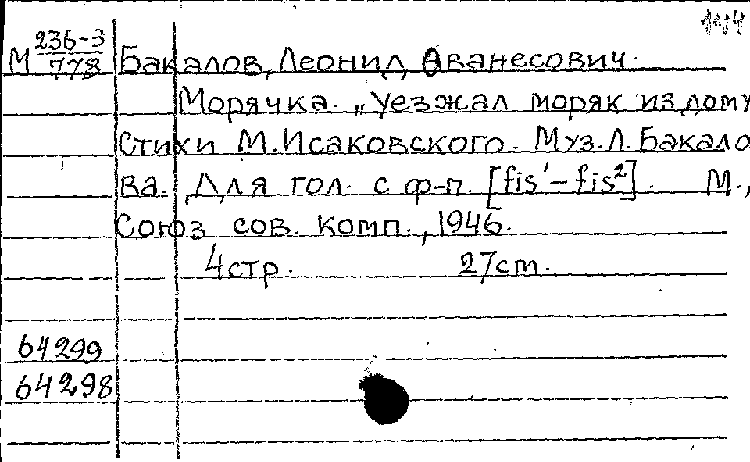 М 236-3/778 Бакалов, Леонид Ованесович.
Морячка. „Уезжал моряк из дому
Стихи М. Исаковского. Муз. Л. Бакало
ва. Для гол. с ф-п. [fis¹-fis²]. М.,
Союз сов. комп., 1946.
4 стр. 27 cm.
64299
64298